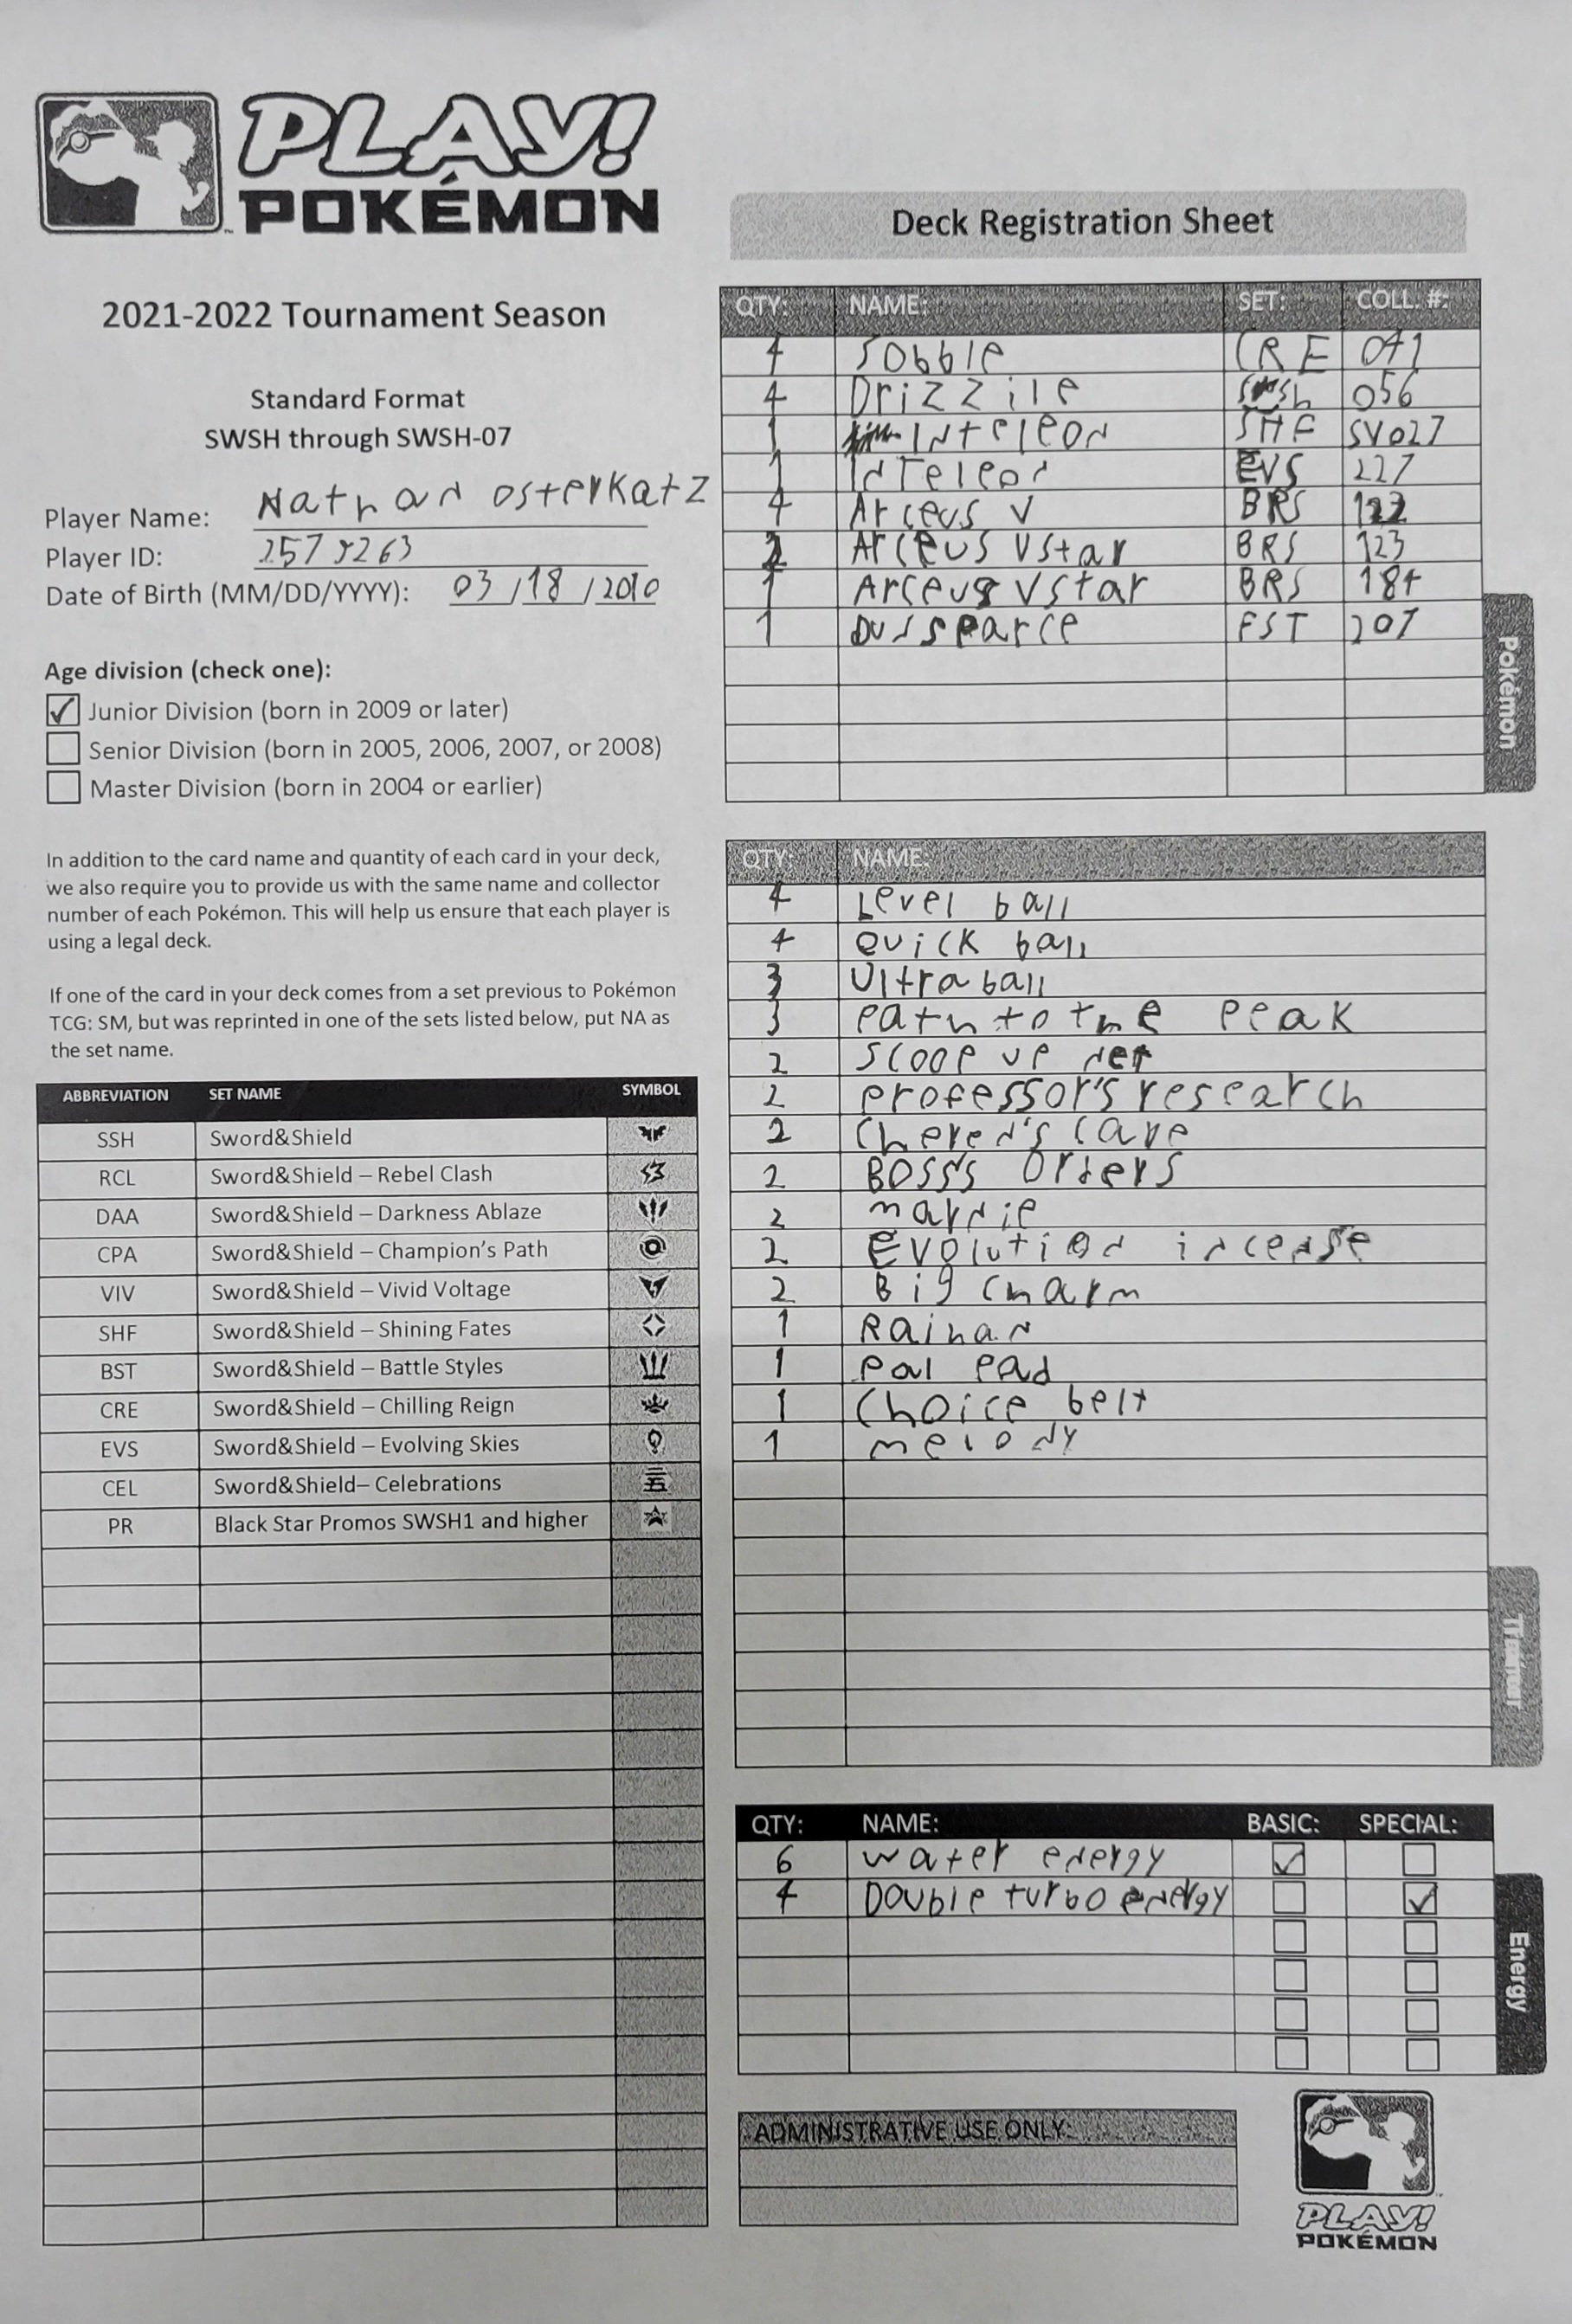 PLAY!
POKÉMON
Deck Registration Sheet
2021-2022 Tournament Season
Standard Format
SWSH through SWSH-07
Player Name: Nathan osterkatz
Player ID: 2575263
Date of Birth (MM/DD/YYYY): 03/18/2010
Age division (check one):
☑ Junior Division (born in 2009 or later)
☐ Senior Division (born in 2005, 2006, 2007, or 2008)
☐ Master Division (born in 2004 or earlier)
In addition to the card name and quantity of each card in your deck,
we also require you to provide us with the same name and collector
number of each Pokémon. This will help us ensure that each player is
using a legal deck.
If one of the card in your deck comes from a set previous to Pokémon
TCG: SM, but was reprinted in one of the sets listed below, put NA as
the set name.
ABBREVIATION SET NAME SYMBOL
SSH Sword&Shield
RCL Sword&Shield – Rebel Clash
DAA Sword&Shield – Darkness Ablaze
CPA Sword&Shield – Champion's Path
VIV Sword&Shield – Vivid Voltage
SHF Sword&Shield – Shining Fates
BST Sword&Shield – Battle Styles
CRE Sword&Shield – Chilling Reign
EVS Sword&Shield – Evolving Skies
CEL Sword&Shield– Celebrations
PR Black Star Promos SWSH1 and higher
QTY: NAME: SET: COLL. #:
4 Sobble CRE 041
4 Drizzile 056
1 Inteleon SHF SV027
1 Inteleon EVS 227
4 Arceus V BRS 122
2 Arceus Vstar BRS 123
1 Arceus Vstar BRS 184
1 Dunsparce FST 207
Pokémon
QTY: NAME:
4 Level ball
4 Quick ball
3 Ultra ball
3 Path to the Peak
2 Scoop up net
2 professor's research
2 Cheren's care
2 Boss's orders
2 marnie
2 Evolution incense
2 Big charm
1 Raihan
1 Pal Pad
1 Choice belt
1 melony
Trainer
QTY: NAME: BASIC: SPECIAL:
6 water energy ☑ ☐
4 Double turbo energy ☐ ☑
Energy
ADMINISTRATIVE USE ONLY:
PLAY!
POKÉMON